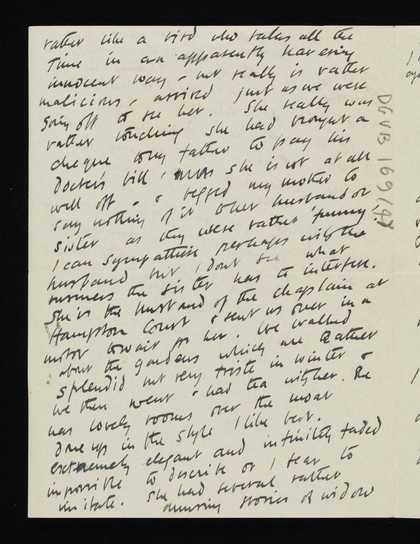 rather like a bird who talks all the
time in an apparently
innocent way & but really is rather
malicious, arrived just as we were
going off to see her. She really was
rather touching she had brought a
cheque to my father to pay his
Doctor's bill, she is not at all
well off & begged my mother to
say nothing of it to her husband or
sister as they were rather 'funny',
I can sympathise perhaps with the
husband but I don't see what
business the sister has to interfere.
She is the husband of the chaplain at
Hampton Court & sent us over in a
motor to wait for her. We walked
about the gardens which are rather
splendid but very triste in winter &
we then went & had tea with her. She
has lovely rooms over the moat
done up in the style I like best.
extremely elegant and infinitely faded
impossible to describe or I fear to
imitate. She had several rather
amusing stories of widow
DGVB 169/47